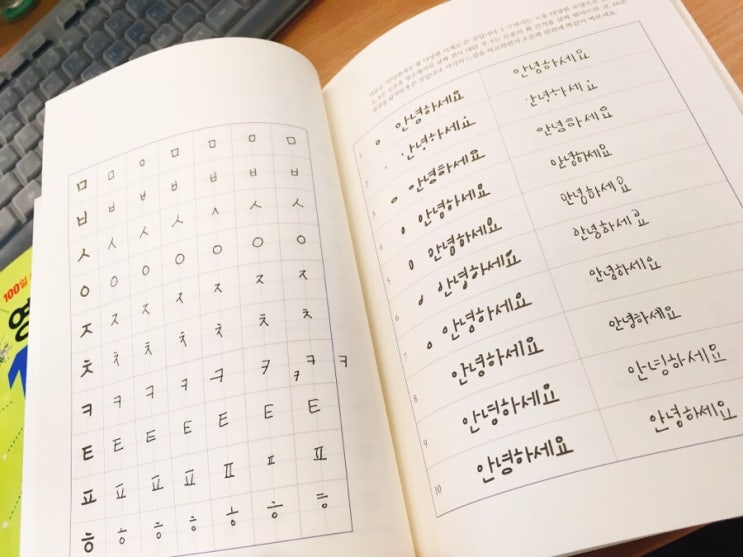 100일
영
ㅁ ㅁ ㅁ ㅁ ㅁ ㅁ ㅁ
ㅂ ㅂ ㅂ ㅂ ㅂ ㅂ ㅂ
ㅅ ㅅ ㅅ ㅅ ㅅ ㅅ ㅅ
ㅇ ㅇ ㅇ ㅇ ㅇ ㅇ ㅇ
ㅈ ㅈ ㅈ ㅈ ㅈ ㅈ ㅈ
ㅊ ㅊ ㅊ ㅊ ㅊ ㅊ ㅊ
ㅋ ㅋ ㅋ ㅋ ㅋ ㅋ ㅋ ㅋ
ㅌ ㅌ ㅌ ㅌ ㅌ ㅌ ㅌ
ㅍ ㅍ ㅍ ㅍ ㅍ ㅍ ㅍ
ㅎ ㅎ ㅎ ㅎ ㅎ ㅎ ㅎ
다음은 '안녕하세요'를 다양한 서체로 쓴 것입니다. 1~7까지는 ㅇ을 다양한 모양으로
1 안녕하세요 안녕하세요
2 안녕하세요 안녕하세요
3 안녕하세요 안녕하세요
4 안녕하세요 안녕하세요
5 안녕하세요 안녕하세요
6 안녕하세요 안녕하세요
7 안녕하세요 안녕하세요
8 안녕하세요 안녕하세요
9 안녕하세요 안녕하세요
10 안녕하세요 안녕하세요